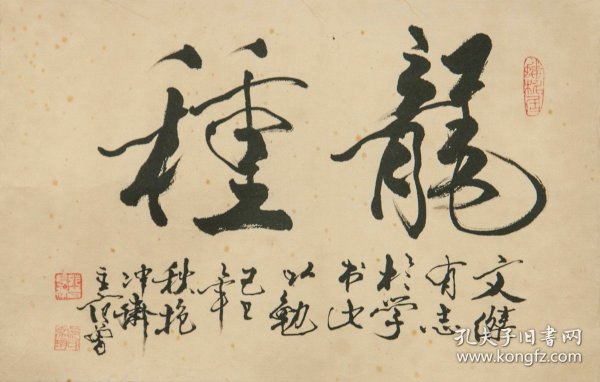 龍種
文傑
有志
於学
书此
以勉
己丑
年
秋抱
冲齋
主范曾
孔夫子旧书网
www.kongfz.com